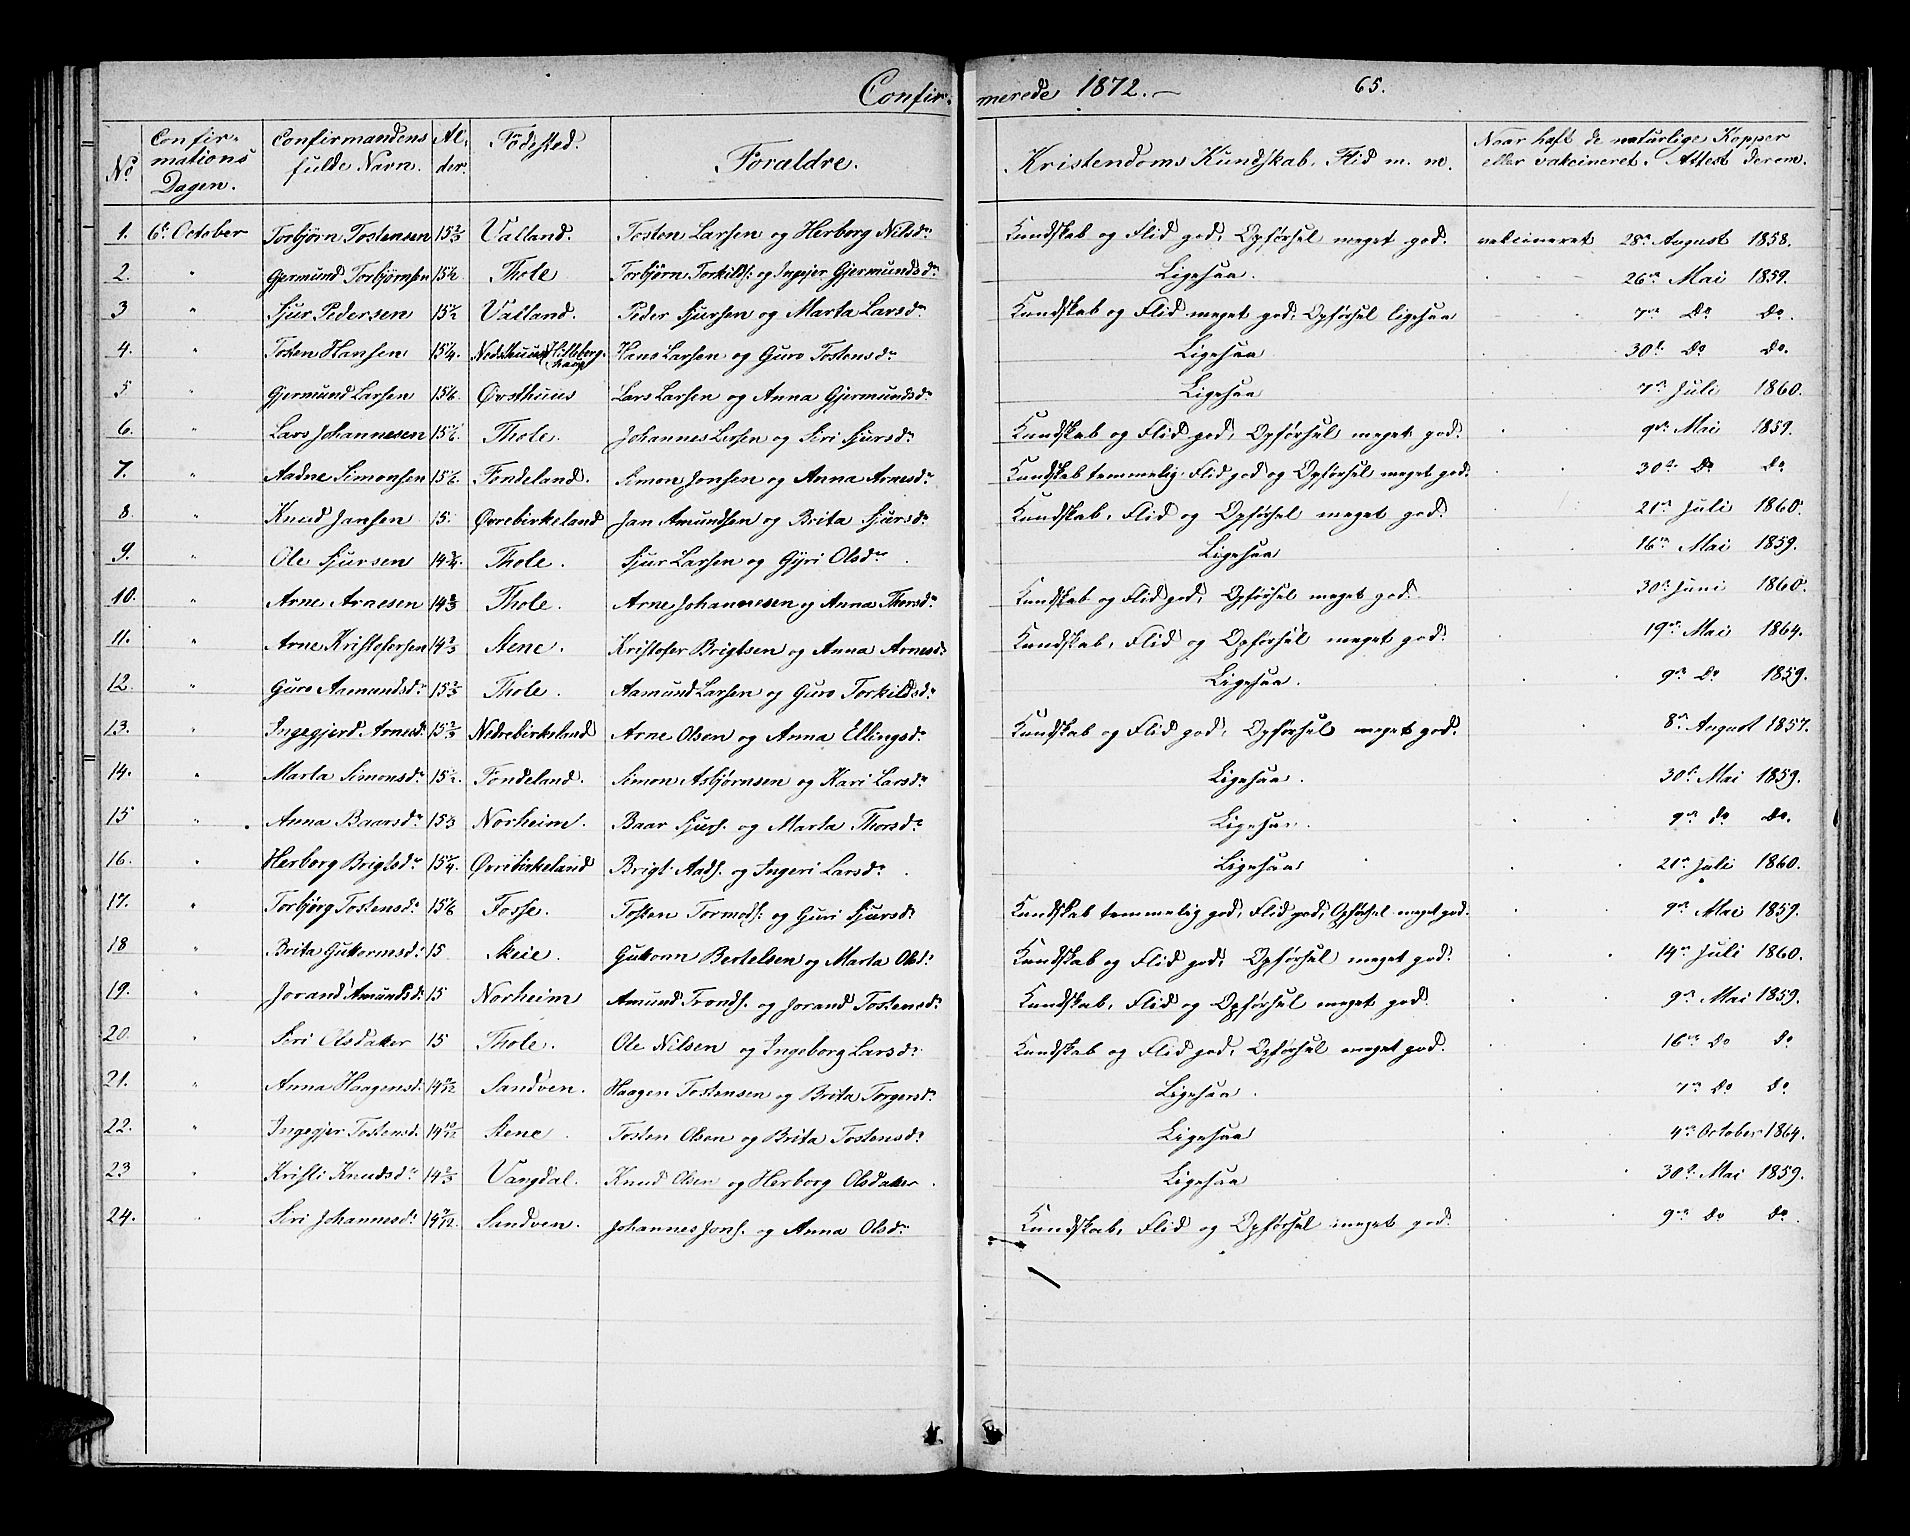 Confir- merede 1872. — 65.
No Confir-mations Dagen. Confirmandens fulde Navn. Al-der. Födested. Forældre. Kristendoms Kundskab, Flid m. m. Naar haft de naturlige Kopper eller vakcineret. Attest derom.
1. 6te October Torbjørn Tostensen 15 2/3 Valland. Tosten Larsen og Herborg Nilsdr Kundskab og Flid god, Opförsel meget god. vakcineret 28de August 1858.
2. " Gjermund Torbjørnsen 15 1/2 Thole Torbjörn Torkilds. og Ingjer Gjermundsdr Ligesaa. 26de Mai 1859.
3 " Sjur Pedersen 15 1/2 Valland. Peder Sjursen og Marta Larsdr Kundskab og Flid meget god, Opförsel ligesaa 7de Do Do.
4. " Tosten Hansen 15 1/4. Hans Larsen og Guro Tostensdr Ligesaa 30te Do Do.
5 " Gjermund Larsen 15 1/6. Øvsthuus Lars Larsen og Anna Gjermundsdr Ligesaa 7de Juli 1860.
6. " Lars Johannesen 15 1/6. Thole. Johannes Larsen og Siri Sjursdr Kundskab og Flid god, Opförsel meget god. 9de Mai 1859.
7. " Aadne Simonsen 15 1/6. Fondeland. Simon Jonsen og Anna Arnesdr Kundskab temmelig, Flid god og Opförsel meget god. 30te Do Do
8. " Knud Jansen 15. Øvrebirkeland Jan Amundsen og Brita Sjursdr Kundskab, Flid og Opförsel meget god. 21de Juli 1860.
9. " Ole Sjursen 14 3/4. Thole. Sjur Larsen og Gyri Olsdr Ligesaa 16de Mai 1859.
10. " Arne Arnesen 14 2/3 Thole. Arne Johannesen og Anna Thorsdr Kundskab og Flid god, Opförsel meget god. 30te Juni 1860.
11. " Arne Kristofersen 14 2/3 Stene. Kristofer Brigtsen og Anna Arnesdr Kundskab, Flid og Opförsel meget god. 19de Mai 1864.
12. " Guro Aamundsdr 15 2/3 Thole. Aamund Larsen og Guro Torkildsdr Ligesaa. 9de Do 1859.
13. " Ingegjerd Arnesd. 15 2/3 Nedrebirkeland Arne Olsen og Anna Ellingsdr Kundskab og Flid god, Opförsel meget god. 8de August 1857.
14. " Marta Simonsdr 15 1/2. Fondeland. Simon Asbjørnsen og Kari Larsdr Ligesaa. 30te Mai 1859.
15 " Anna Baarsdr 15 1/3 Norheim. Baar Sjurs. og Marta Thorsdr Ligesaa. 9de do Do.
16. " Herborg Brigtsdr 15 1/4. Øvrebirkeland Brigt Aads. og Ingeri Larsdr Ligesaa 21de Juli 1860.
17. " Torbjörg Tostensdr 15 1/6 Fosse. Tosten Tormods. og Guri Sjursdr Kundskab temmelig god, Flid god, Opförsel meget god. 9de Mai 1859.
18 " Brita Guttormsdr 15 Skeie. Guttorm Bertelsen og Marta Olsdr Kundskab og Flid god, Opförsel meget god. 14de Juli 1860.
19. " Jorand Amundsdr 15 Norheim Amund Tronds. og Jorand Tostensdr Kundskab, Flid og Opförsel meget god. 9de Mai 1859.
20. " Siri Olsdatter 15 Thole. Ole Nilsen og Ingeborg Larsdr Kundskab og Flid god, Opförsel meget god. 16de do do
21. " Anna Haagensd. Sandven. Haagen Tostensen og Brita Torgersdr Ligesaa. 7de do do
22. " Ingegjer Tostensd. 14 10/12 Stene Tosten Olsen og Brita Tostensdr Ligesaa 4de October 1864.
23 " Kristi Knudsdr 14 2/3 Vangdal. Knud Olsen og Herborg Olsdatter. Ligesaa 30te Mai 1859.
24. " Siri Johannesdr 14 7/12 Sandven. Johannes Jons. og Anna Olsdr Kundskab, Flid og Opförsel meget god. 9de do do.